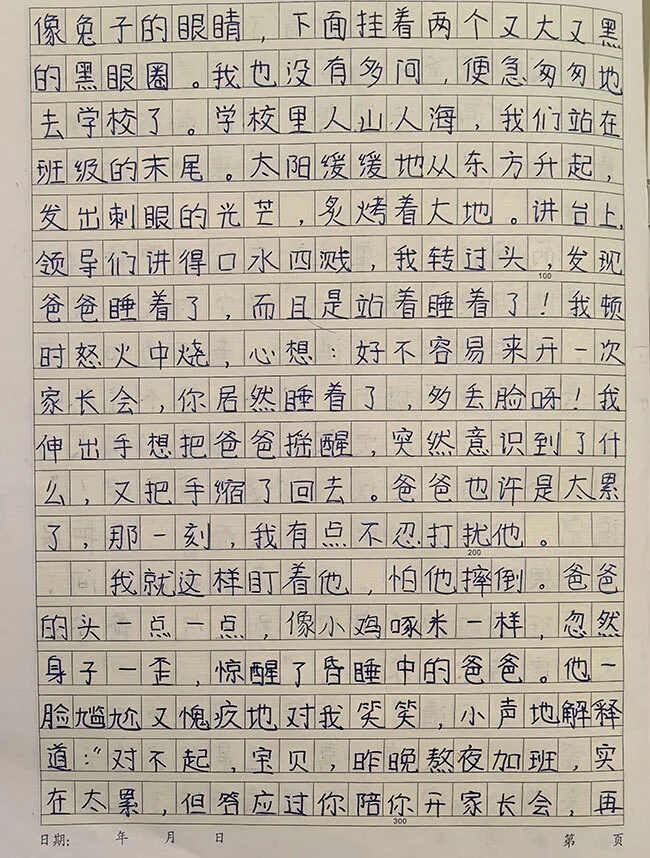 像兔子的眼睛，下面挂着两个又大又黑
的黑眼圈。我也没有多问，便急匆匆地
去学校了。学校里人山人海，我们站在
班级的末尾。太阳缓缓地从东方升起，
发出刺眼的光芒，炙烤着大地。讲台上，
领导们讲得口水四溅，我转过头，发现
100
爸爸睡着了，而且是站着睡着了！我顿
时怒火中烧，心想：好不容易来开一次
家长会，你居然睡着了，多丢脸呀！我
伸出手想把爸爸摇醒，突然意识到了什
么，又把手缩了回去。爸爸也许是太累
了，那一刻，我有点不忍打扰他。
200
我就这样盯着他，怕他摔倒。爸爸
的头一点一点，像小鸡啄米一样，忽然
身子一歪，惊醒了昏睡中的爸爸。他一
脸尴尬又愧疚地对我笑笑，小声地解释
道：“对不起，宝贝，昨晚熬夜加班，实
在太累，但答应过你陪你开家长会，再
300
日期： 年 月 日 第 页